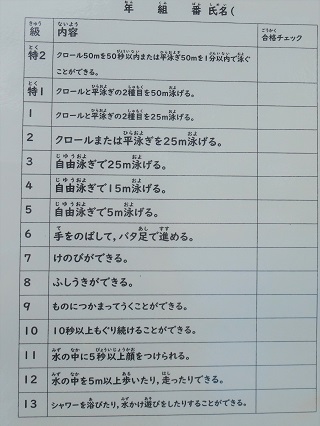 年 組 番 氏名(
級 内容 合格チェック
特2 クロール50mを50秒以内または平泳ぎ50mを1分以内で泳ぐ
ことができる。
特1 クロールと平泳ぎの2種目を50m泳げる。
1 クロールと平泳ぎの2種目を25m泳げる。
2 クロールまたは平泳ぎを25m泳げる。
3 自由泳ぎで25m泳げる。
4 自由泳ぎで15m泳げる。
5 自由泳ぎで5m泳げる。
6 手をのばして,バタ足で進める。
7 けのびができる。
8 ふしうきができる。
9 ものにつかまってうくことができる。
10 10秒以上もぐり続けることができる。
11 水の中に5秒以上顔をつけられる。
12 水の中を5m以上歩いたり,走ったりできる。
13 シャワーを浴びたり,水かけ遊びをしたりすることができる。